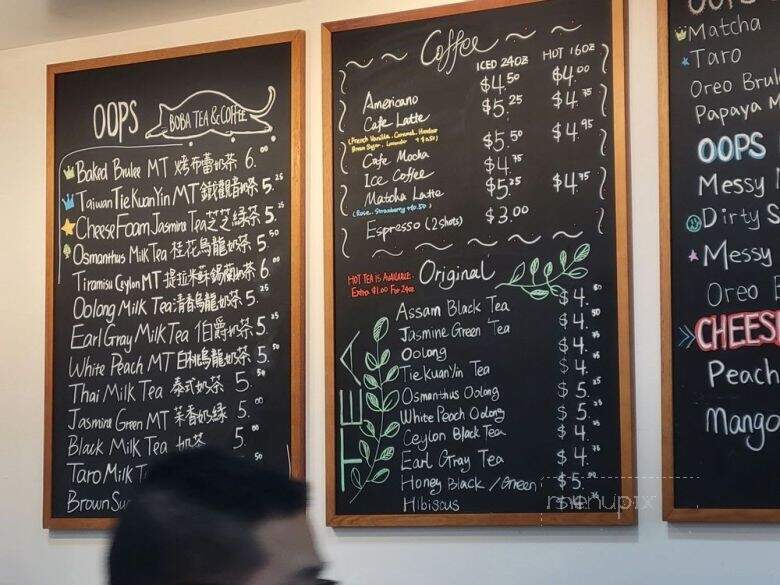 OOPS BOBA TEA & COFFEE
Baked Brulee MT 烤布蕾奶茶 6.00
Taiwan Tie Kuan Yin MT 鐵觀音奶茶 5.25
Cheese Foam Jasmine Tea 芝芝綠茶 5.25
Osmanthus Milk Tea 桂花烏龍奶茶 5.50
Tiramisu Ceylon MT 提拉米蘇錫蘭奶茶 6.00
Oolong Milk Tea 清香烏龍奶茶 5.25
Earl Gray Milk Tea 伯爵奶茶 5.25
White Peach MT 白桃烏龍奶茶 5.50
Thai Milk Tea 泰式奶茶 5.50
Jasmine Green MT 茉香奶綠 5.00
Black Milk Tea 奶茶 5.00
Taro Milk T
Brown Su
Coffee
ICED 24OZ HOT 16OZ
Americano $4.50 $4.00
Cafe Latte $5.25 $4.75
(French Vanilla. Caramel.
Brown Sugar. Lavender +$0.50)
Cafe Mocha $5.50 $4.95
Ice Coffee $4.75
Matcha Latte $5.25 $4.75
(Rose. Strawberry +$0.50)
Espresso (2shots) $3.00
HOT TEA IS AVAILABLE.
Extra $1.00 For 24oz
Original
TEA
Assam Black Tea $4.50
Jasmine Green Tea $4.50
Oolong $4.
Tie Kuan Yin Tea $4.
Osmanthus Oolong $5.
White Peach Oolong $5.
Ceylon Black Tea $4.
Earl Gray Tea $4.
Honey Black / Green $5.00
Hibiscus $4.
Matcha
Taro
Oreo Brul
Papaya M
OOPS
Messy
Dirty S
Messy
Oreo B
CHEES
Peach
Mango
menupix